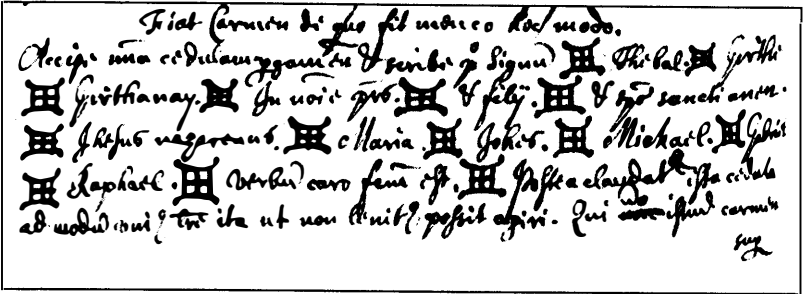 Fiat Carmen de quo fit mencio hoc modo.
Accipe unā cedulam pgamen̄ & scribe p̱ Signū ✠ Thebal. ✠ Guthe
✠ Guthanay. ✠ In noīe pr̄s. ✠ & filij. ✠ & spūs sancti amen.
✠ Jhesus nazarenus. ✠ Maria. ✠ Johes. ✠ Michael. ✠ Gabriel
✠ Raphael. ✠ verbū caro fcm̄ est. ✠ Postea claudat ista cedula
ad modū lrē ita ut non leuitr possit apiri. Qui istud carmen
sup